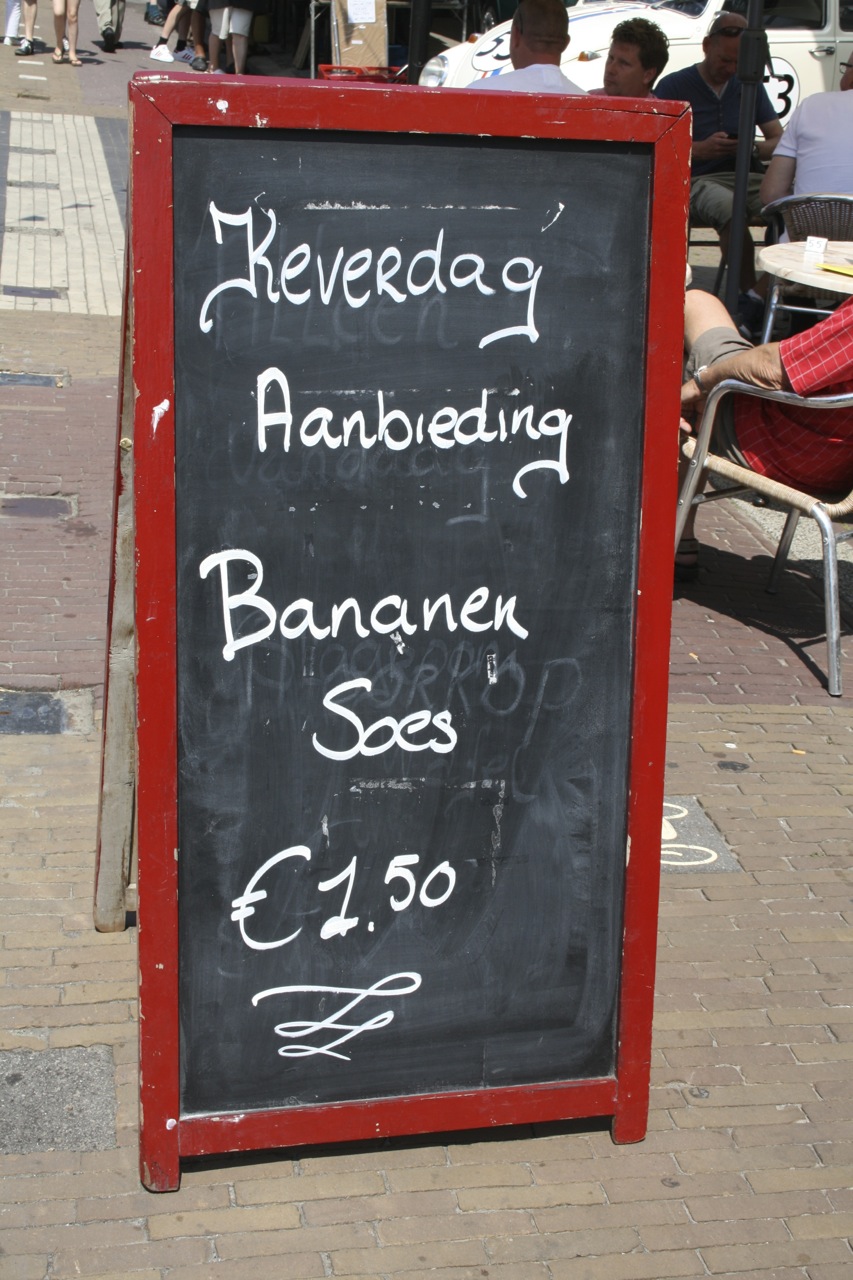 Keverdag
Aanbieding
Bananen
Soes
€1.50
53